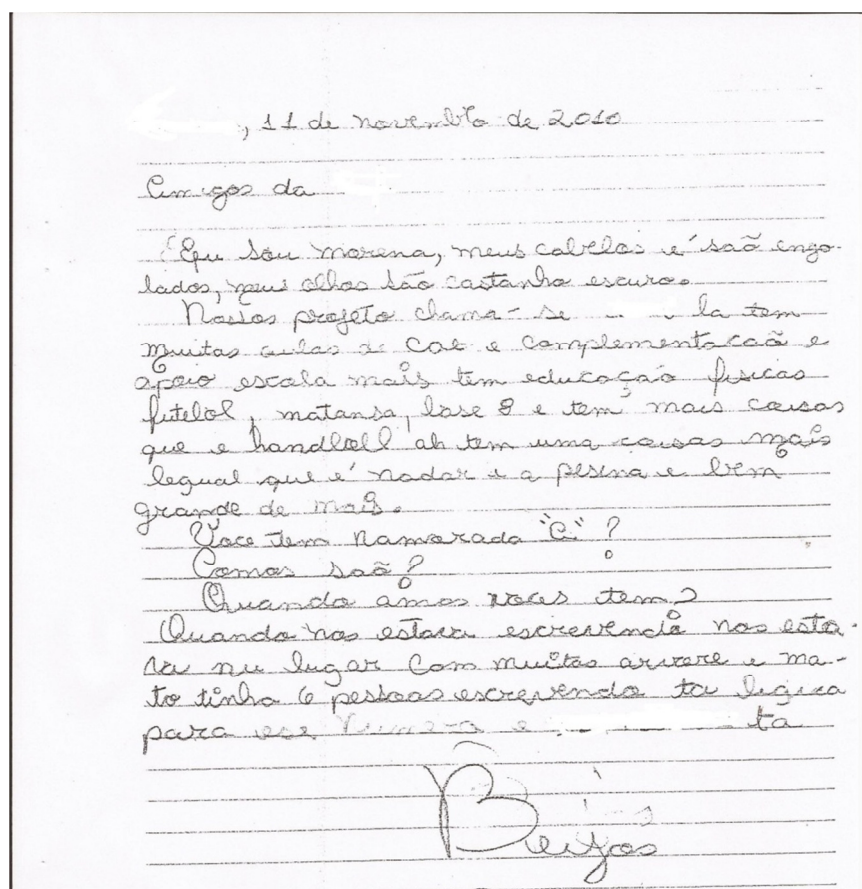 , 11 de novembro de 2010
Amigos da
Eu sou morena, meus cabelos e' são enqo-
lados, meus olhos são castanho escuros.
Nossos projeto chama-se la tem
muitas aulas de Cat e complementacaã e
apoio escola mais tem educoçaõ fisicas
futebol, matansa, base 8 e tem mais coisas
que e handboll ah tem uma coisas mais
legual que e' nadar e a pesina e bem
grande de mais.
Voce tem namorada "a" ?
Comos saõ?
Quando amos voces tem?
Quando nos estava escrevendo nos esta-
va nu lugar com muitas arvore e ma-
to tinha 6 pessoas escrevendo ta ligica
para ese numero e ta
Beijos